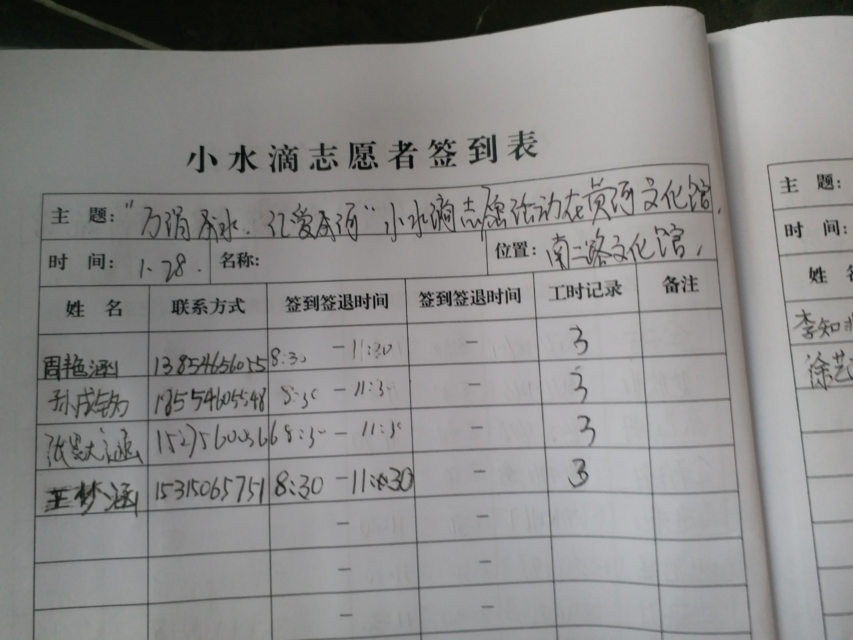 小水滴志愿者签到表
主 题: "万涓成水·汇爱成河"小水滴志愿活动在黄河文化馆.
时 间: 1.28. 名称: 位置: 南二路文化馆,
姓 名 联系方式 签到签退时间 签到签退时间 工时记录 备注
周艳涵 13854656055 8:30 - 11:30 - 3
孙 18554605548 8:30 - 11:30 - 3
张 8:30 - 11:30 - 3
王梦涵 15315065751 8:30 - 11:30 - 3
- -
- -
- -
主 题:
时 间:
姓
李知
徐艺